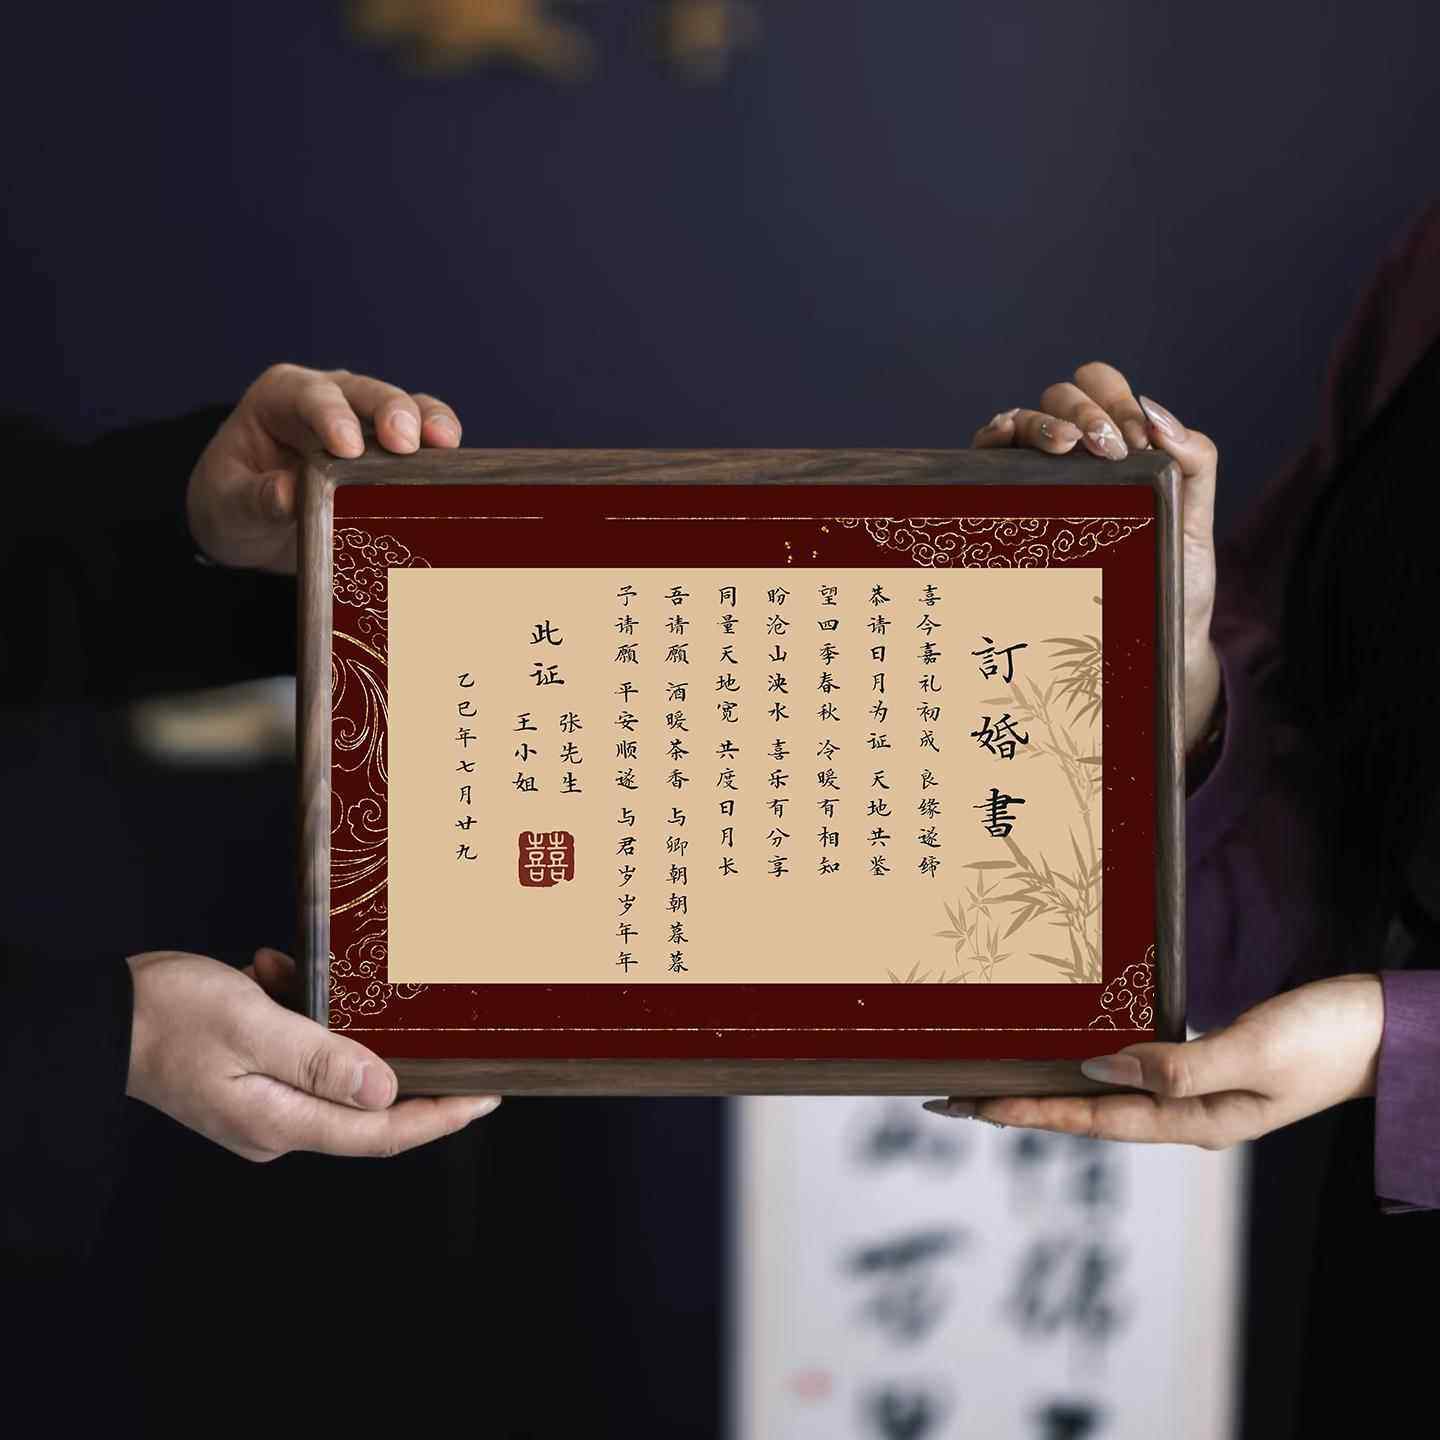 訂婚書
喜今嘉礼初成 良缘遂缔
恭请日月为证 天地共鉴
望四季春秋 冷暖有相知
盼沧山泱水 喜乐有分享
同量天地宽 共度日月长
吾请愿 酒暖茶香 与卿朝朝暮暮
予请愿 平安顺遂 与君岁岁年年
此证
张先生
王小姐
囍
乙巳年七月廿九